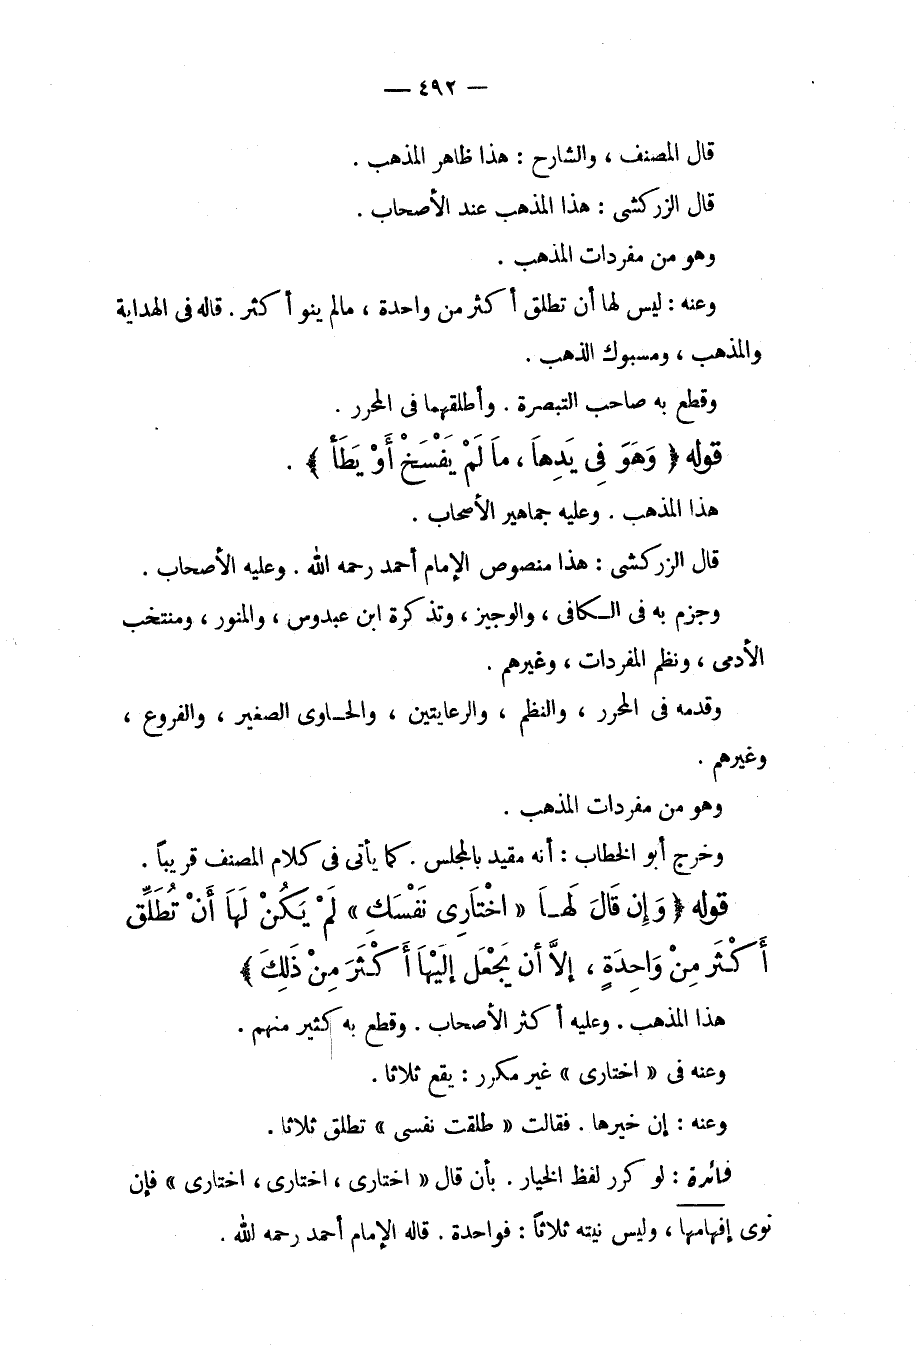 — ٤٩٢ —
قال المصنف ، والشارح : هذا ظاهر المذهب .
قال الزركشى : هذا المذهب عند الأصحاب .
وهو من مفردات المذهب .
وعنه : ليس لها أن تطلق أكثر من واحدة ، مالم ينو أكثر . قاله فى الهداية
والمذهب ، ومسبوك الذهب .
وقطع به صاحب التبصرة . وأطلقهما فى المحرر .
قوله ﴿ وَهَوَ فِى يَدِهاَ ، ماَ لَمْ يَفْسَخْ أَوْ يَطَأْ ﴾ .
هذا المذهب . وعليه جماهير الأصحاب .
قال الزركشى : هذا منصوص الإمام أحمد رحمه الله . وعليه الأصحاب .
وجزم به فى الـكافى ، والوجيز ، وتذكرة ابن عبدوس ، والمنور ، ومنتخب
الأدمى ، ونظم المفردات ، وغيرهم .
وقدمه فى المحرر ، والنظم ، والرعايتين ، والحـاوى الصغير ، والفروع ،
وغيرهم .
وهو من مفردات المذهب .
وخرج أبو الخطاب : أنه مقيد بالمجلس . كما يأتى فى كلام المصنف قريباً .
قوله ﴿ وَإِن قَالَ لَهـاَ « اخْتاَرِى نَفْسَكِ » لَمْ يَكُنْ لَهاَ أَنْ تُطَلِّقَ
أَكْثَر مِنْ وَاحِدَةٍ ، إلاَّ أن يَجْعَل إلَيْهاَ أَكْثَرَ مِنْ ذَلِكَ ﴾
هذا المذهب . وعليه أكثر الأصحاب . وقطع به كثير منهم .
وعنه فى « اختارى » غير مكرر : يقع ثلاثا .
وعنه : إن خيرها . فقالت « طلقت نفسى » تطلق ثلاثا .
فائدة : لو كرر لفظ الخيار . بأن قال « اختارى ، اختارى ، اختارى » فإن
نوى إفهامها ، وليس نيته ثلاثاً : فواحدة . قاله الإمام أحمد رحمه الله .